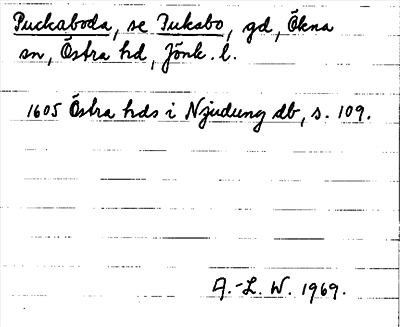 Puckaboda, se Puksbo, gd, Ökna
sn, Östra hd, Jönk. l.
1605 Östra hds i Njudung db, s. 109.
A.-L. W. 1969.